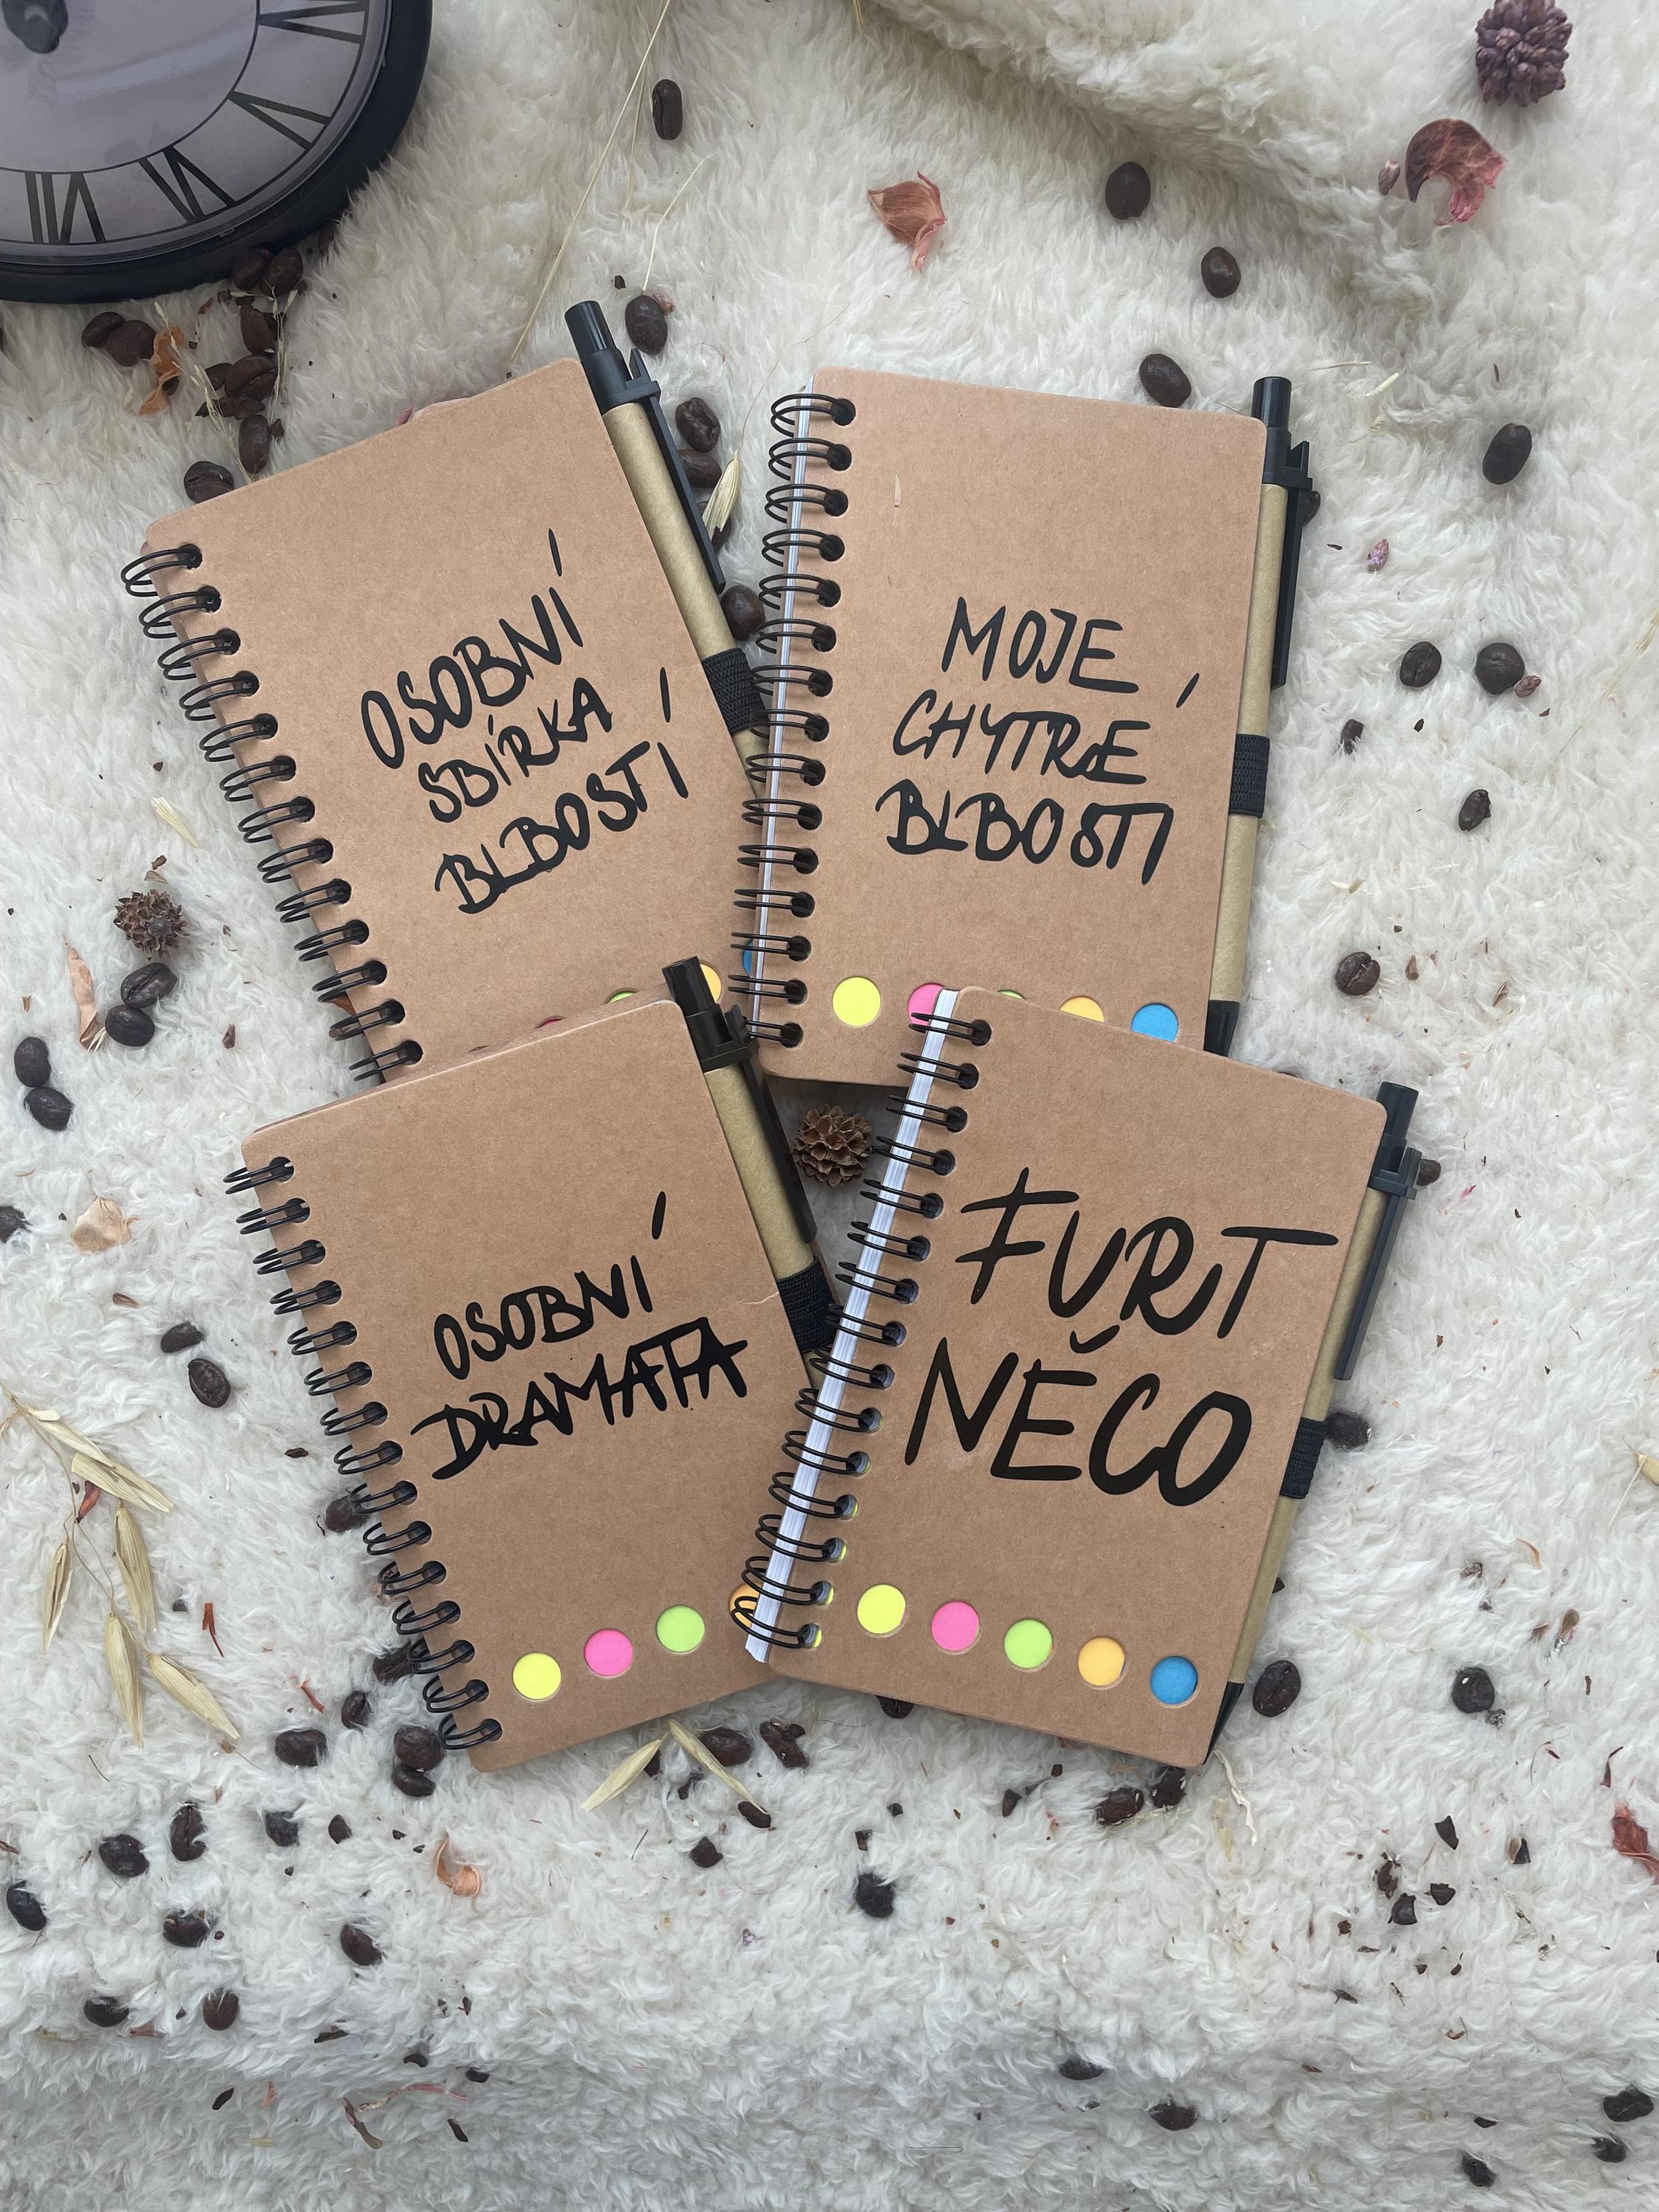 OSOBNÍ
SBÍRKA
BLBOSTÍ
MOJE
CHYTRÉ
BLBOSTI
OSOBNÍ
DRAMATA
FURT
NĚCO
V
VI
VII